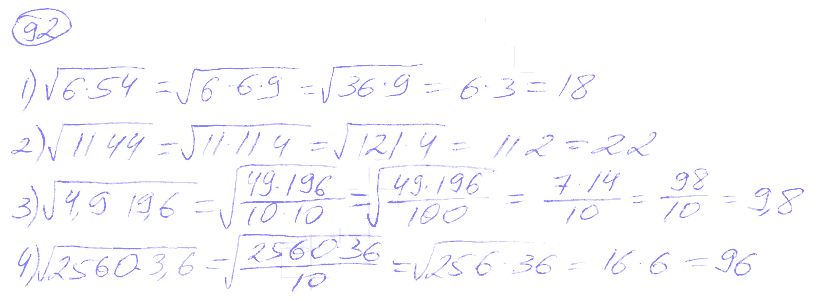 92
1) √6·54 = √6·6·9 = √36·9 = 6·3 = 18
2) √11 44 = √11·11 4 = √121 4 = 11 2 = 22
3) √4,9 19,6 = √49·196/10·10 = √49·196/100 = 7·14/10 = 98/10 = 9,8
4) √2560·3,6 = √2560·36/10 = √256·36 = 16·6 = 96